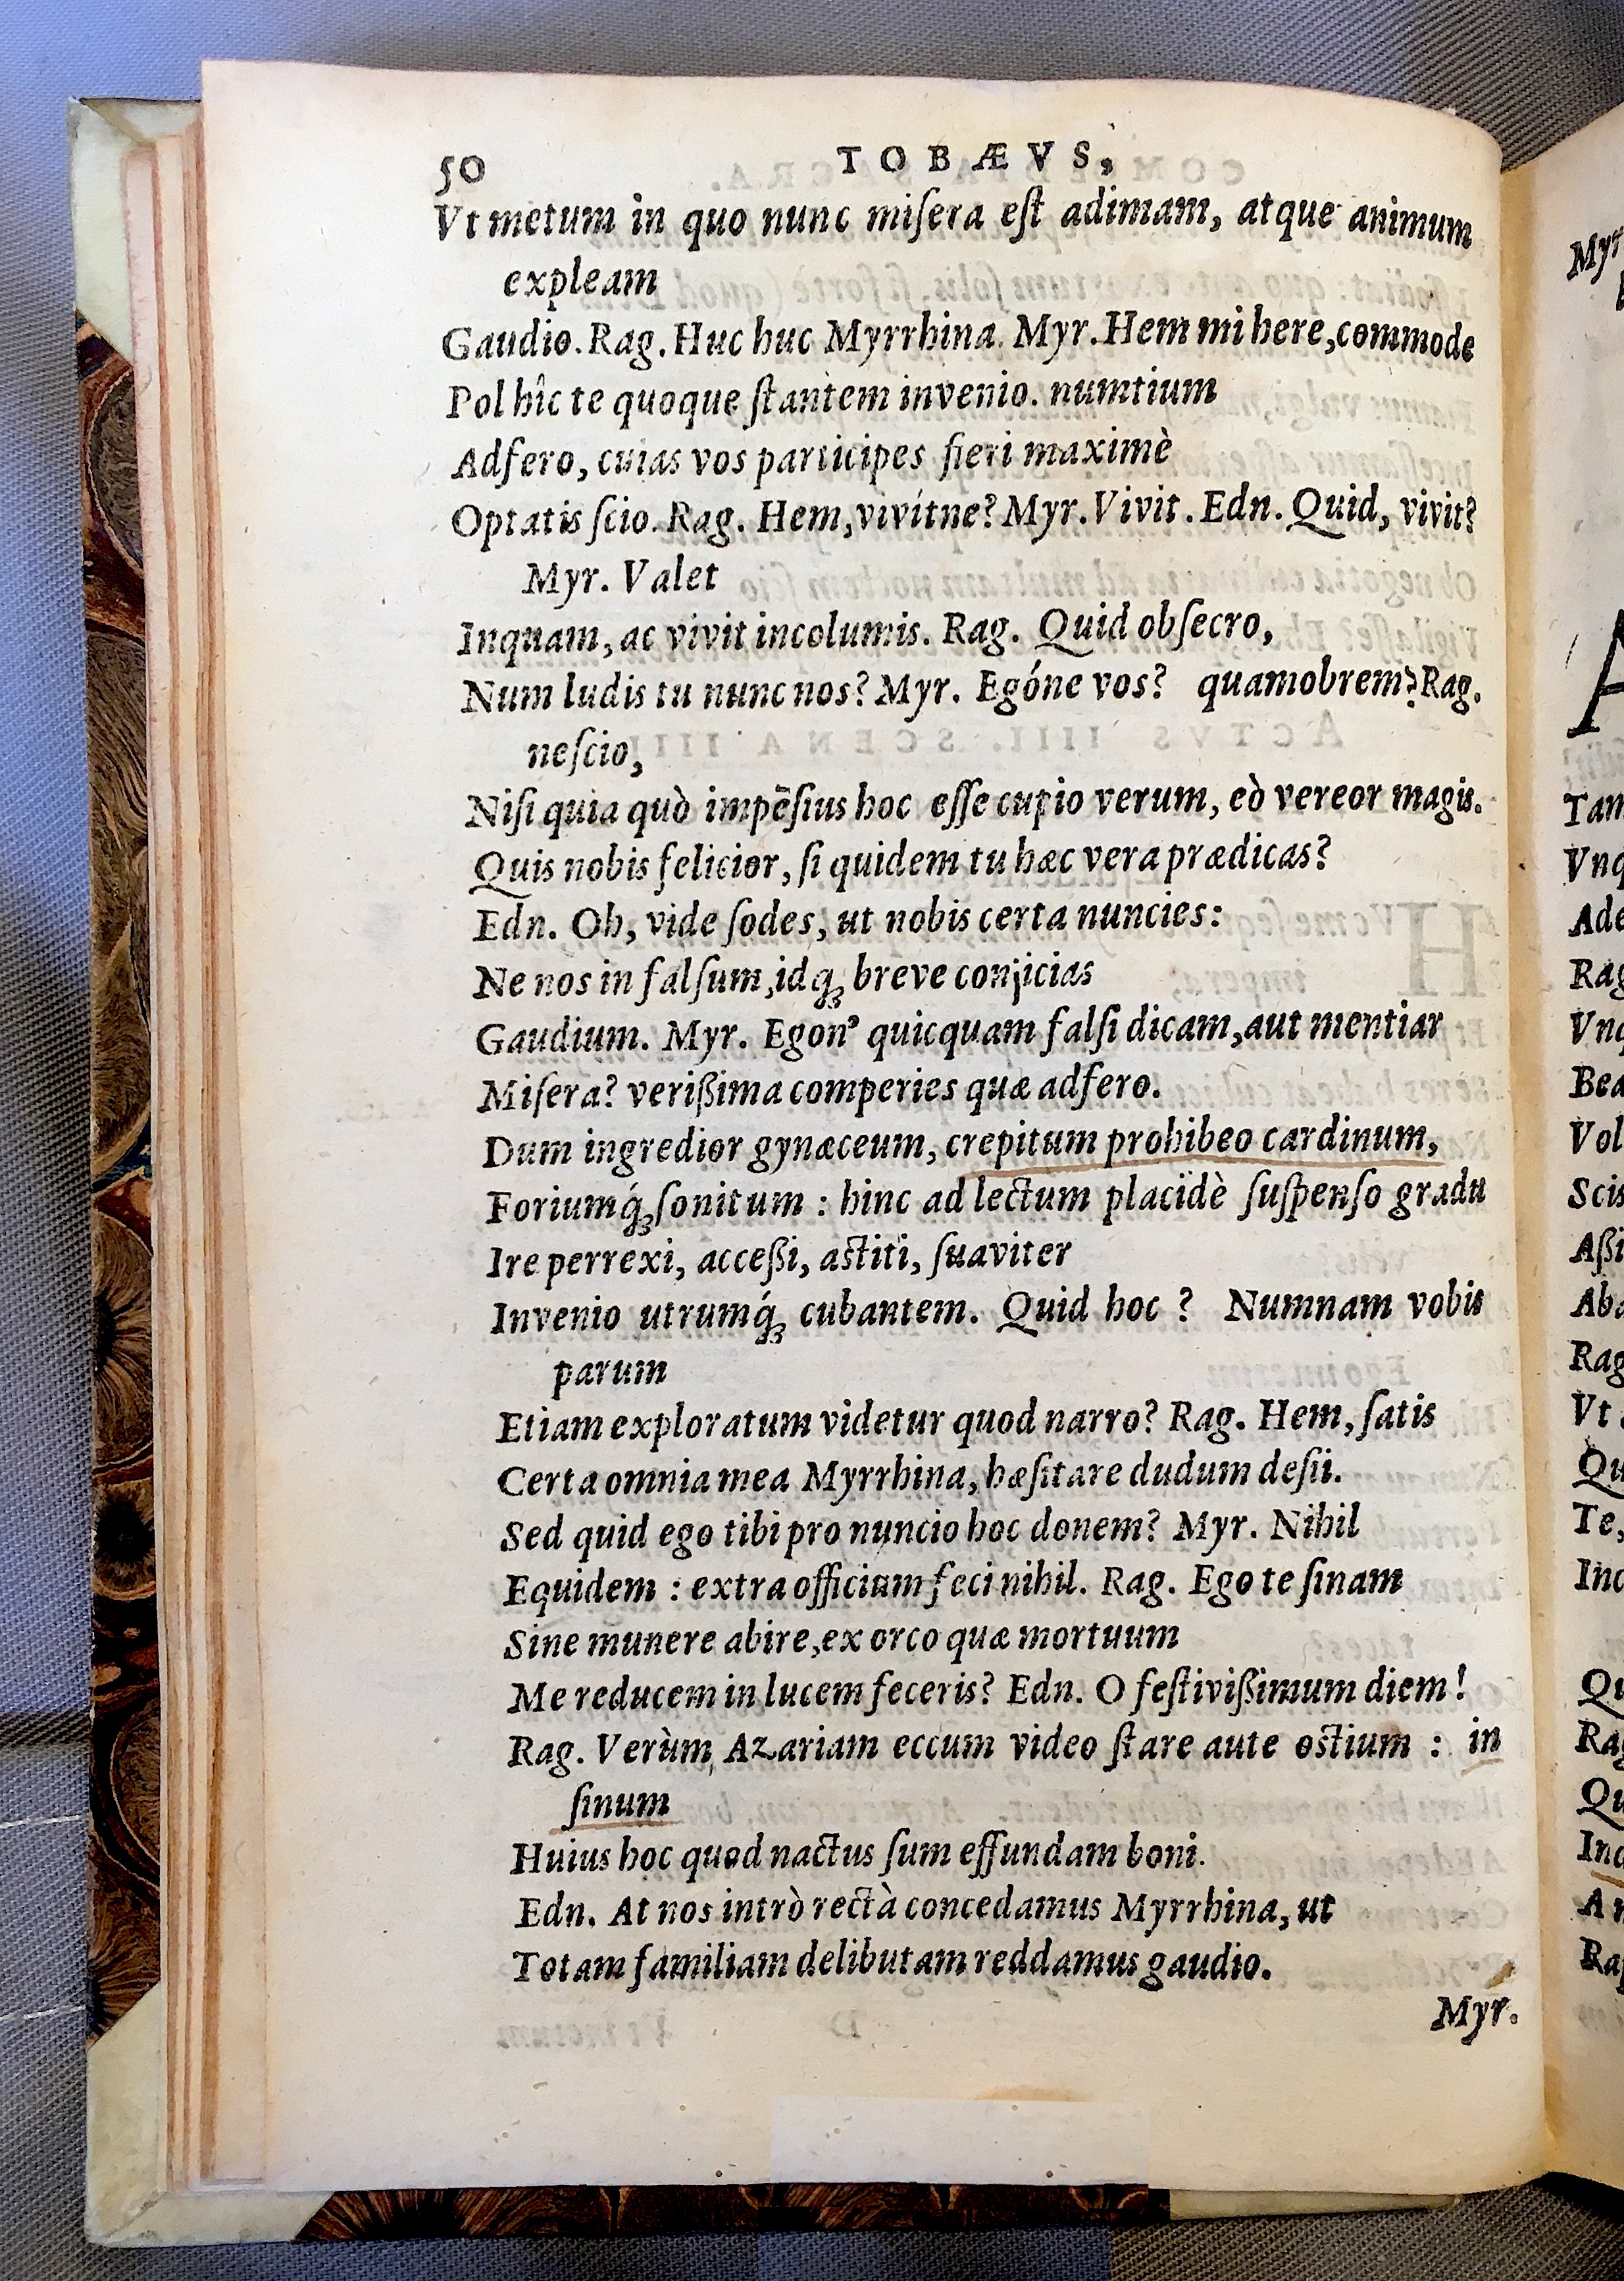 50 TOBÆVS,
Vt metum in quo nunc miſera eſt adimam, atque animum
expleam
Gaudio. Rag. Huc huc Myrrhina. Myr. Hem mi here, commode
Pol hîc te quoque ſtantem invenio. numtium
Adfero, cuias vos participes fieri maximè
Optatis ſcio. Rag. Hem, vivítne? Myr. Vivit. Edn. Quid, vivit?
Myr. Valet
Inquam, ac vivit incolumis. Rag. Quid obſecro,
Num ludis tu nunc nos? Myr. Egóne vos? quamobrem? Rag.
neſcio,
Niſi quia quò impēſius hoc eſſe cupio verum, eò vereor magis.
Quis nobis felicior, ſi quidem tu hæc vera prædicas?
Edn. Oh, vide ſodes, ut nobis certa nuncies:
Ne nos in falſum, idq́ꝫ breve conjicias
Gaudium. Myr. Egon' quicquam falſi dicam, aut mentiar
Miſera? verißima comperies quæ adfero.
Dum ingredior gynæceum, crepitum prohibeo cardinum,
Foriumq́ꝫ ſonitum : hinc ad lectum placidè ſuſpenſo gradu
Ire perrexi, acceßi, aſtiti, ſuaviter
Invenio utrumq́ꝫ cubantem. Quid hoc ? Numnam vobis
parum
Etiam exploratum videtur quod narro? Rag. Hem, ſatis
Certa omnia mea Myrrhina, hæſitare dudum deſii.
Sed quid ego tibi pro nuncio hoc donem? Myr. Nihil
Equidem : extra officium feci nihil. Rag. Ego te ſinam
Sine munere abire, ex orco quæ mortuum
Me reducem in lucem feceris? Edn. O feſtivißimum diem!
Rag. Verùm, Azariam eccum video ſtare aute oſtium : in
ſinum
Huius hoc quod nactus ſum effundam boni.
Edn. At nos intrò rectà concedamus Myrrhina, ut
Totam familiam delibutam reddamus gaudio.
Myr.
Myr
Tam
Vnq
Ade
Rag
Vnq
Bea
Vol
Scis
Aßi
Aba
Rag
Vt
Qu
Te,
Inc
Qu
Rag
Qu
Inc
Rap